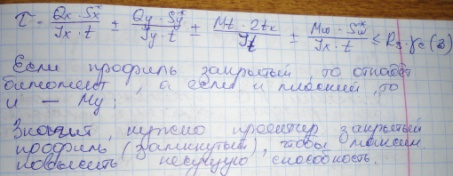 τ = Qx · Sx / Jx · t ± Qy · Sy / Jy · t ± Mt · 2tк / Jt ± Mω · Sω / Jx · t ≤ Rs · γc (2)
Если профиль закрытый, то
бимомент, а если и плоский, то
и — Му;
Значит, нужно закрытый
профиль (замкнутый), чтобы
повысить несущую способность.